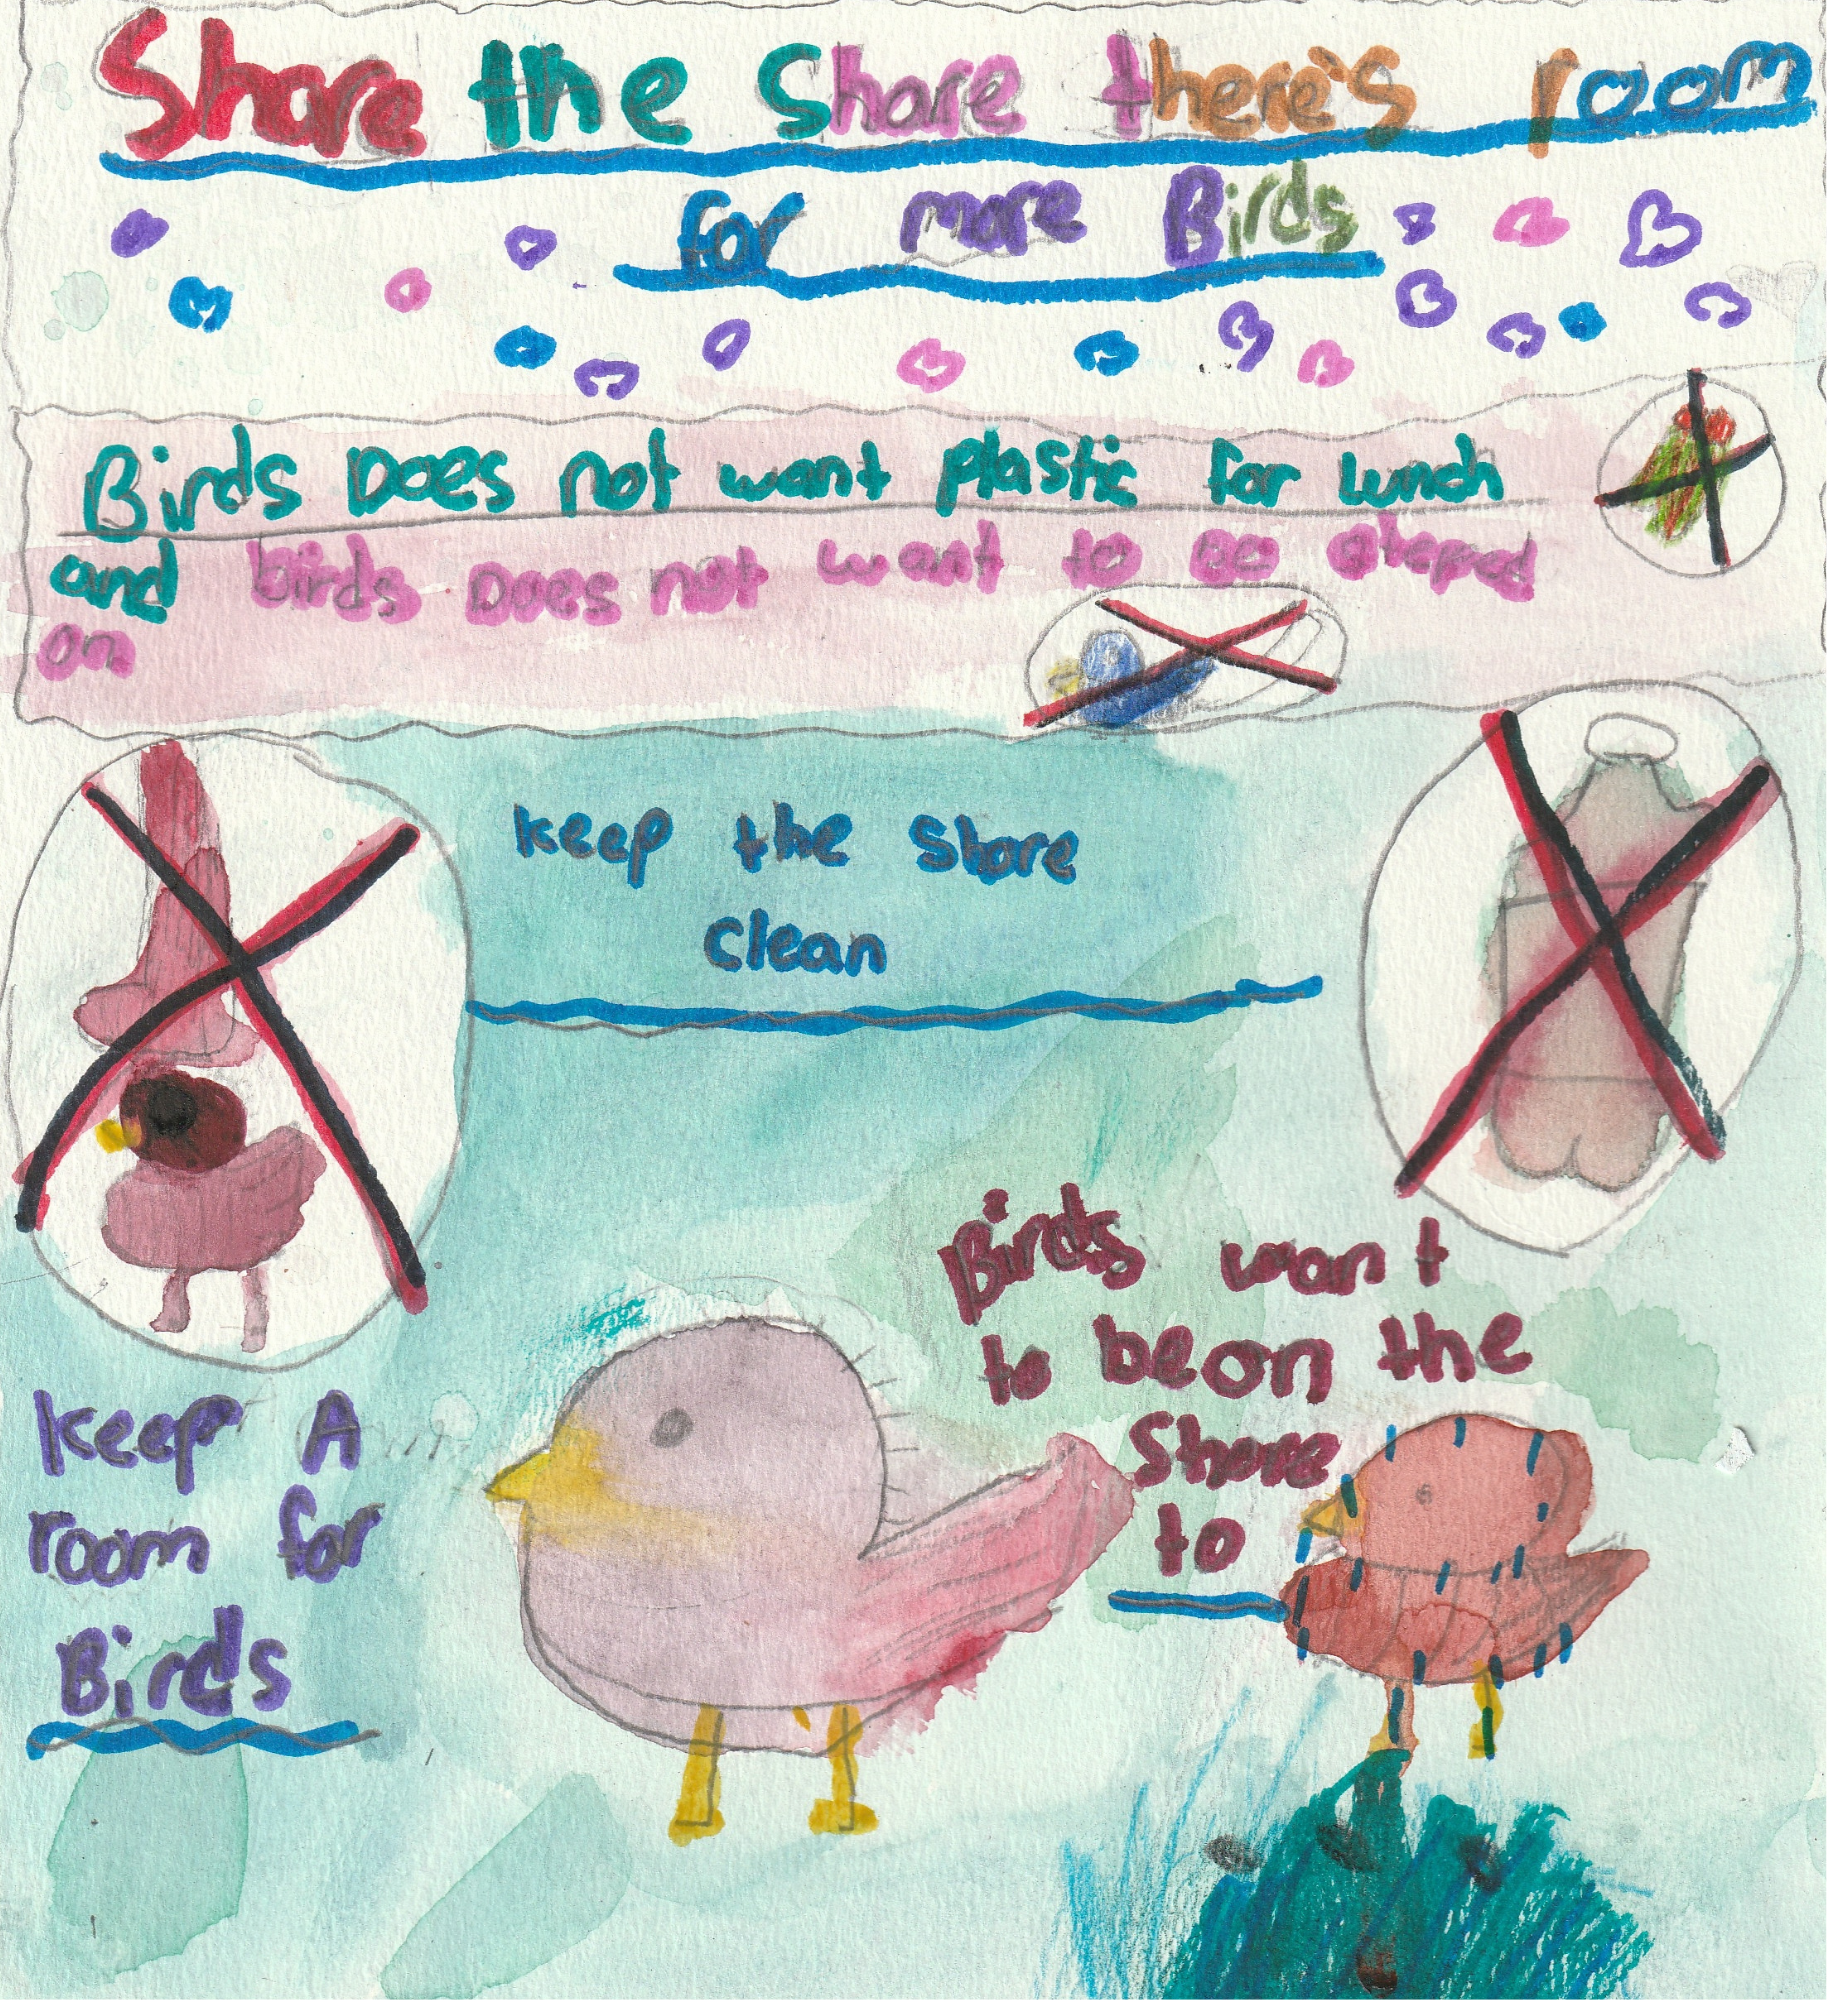 Share the Shore there's room
for more Birds
Birds Does not want plastic for lunch
and birds Does not want to be steped
on
keep the Shore
clean
Birds want
to be on the
Shore
to
keep A
room for
Birds